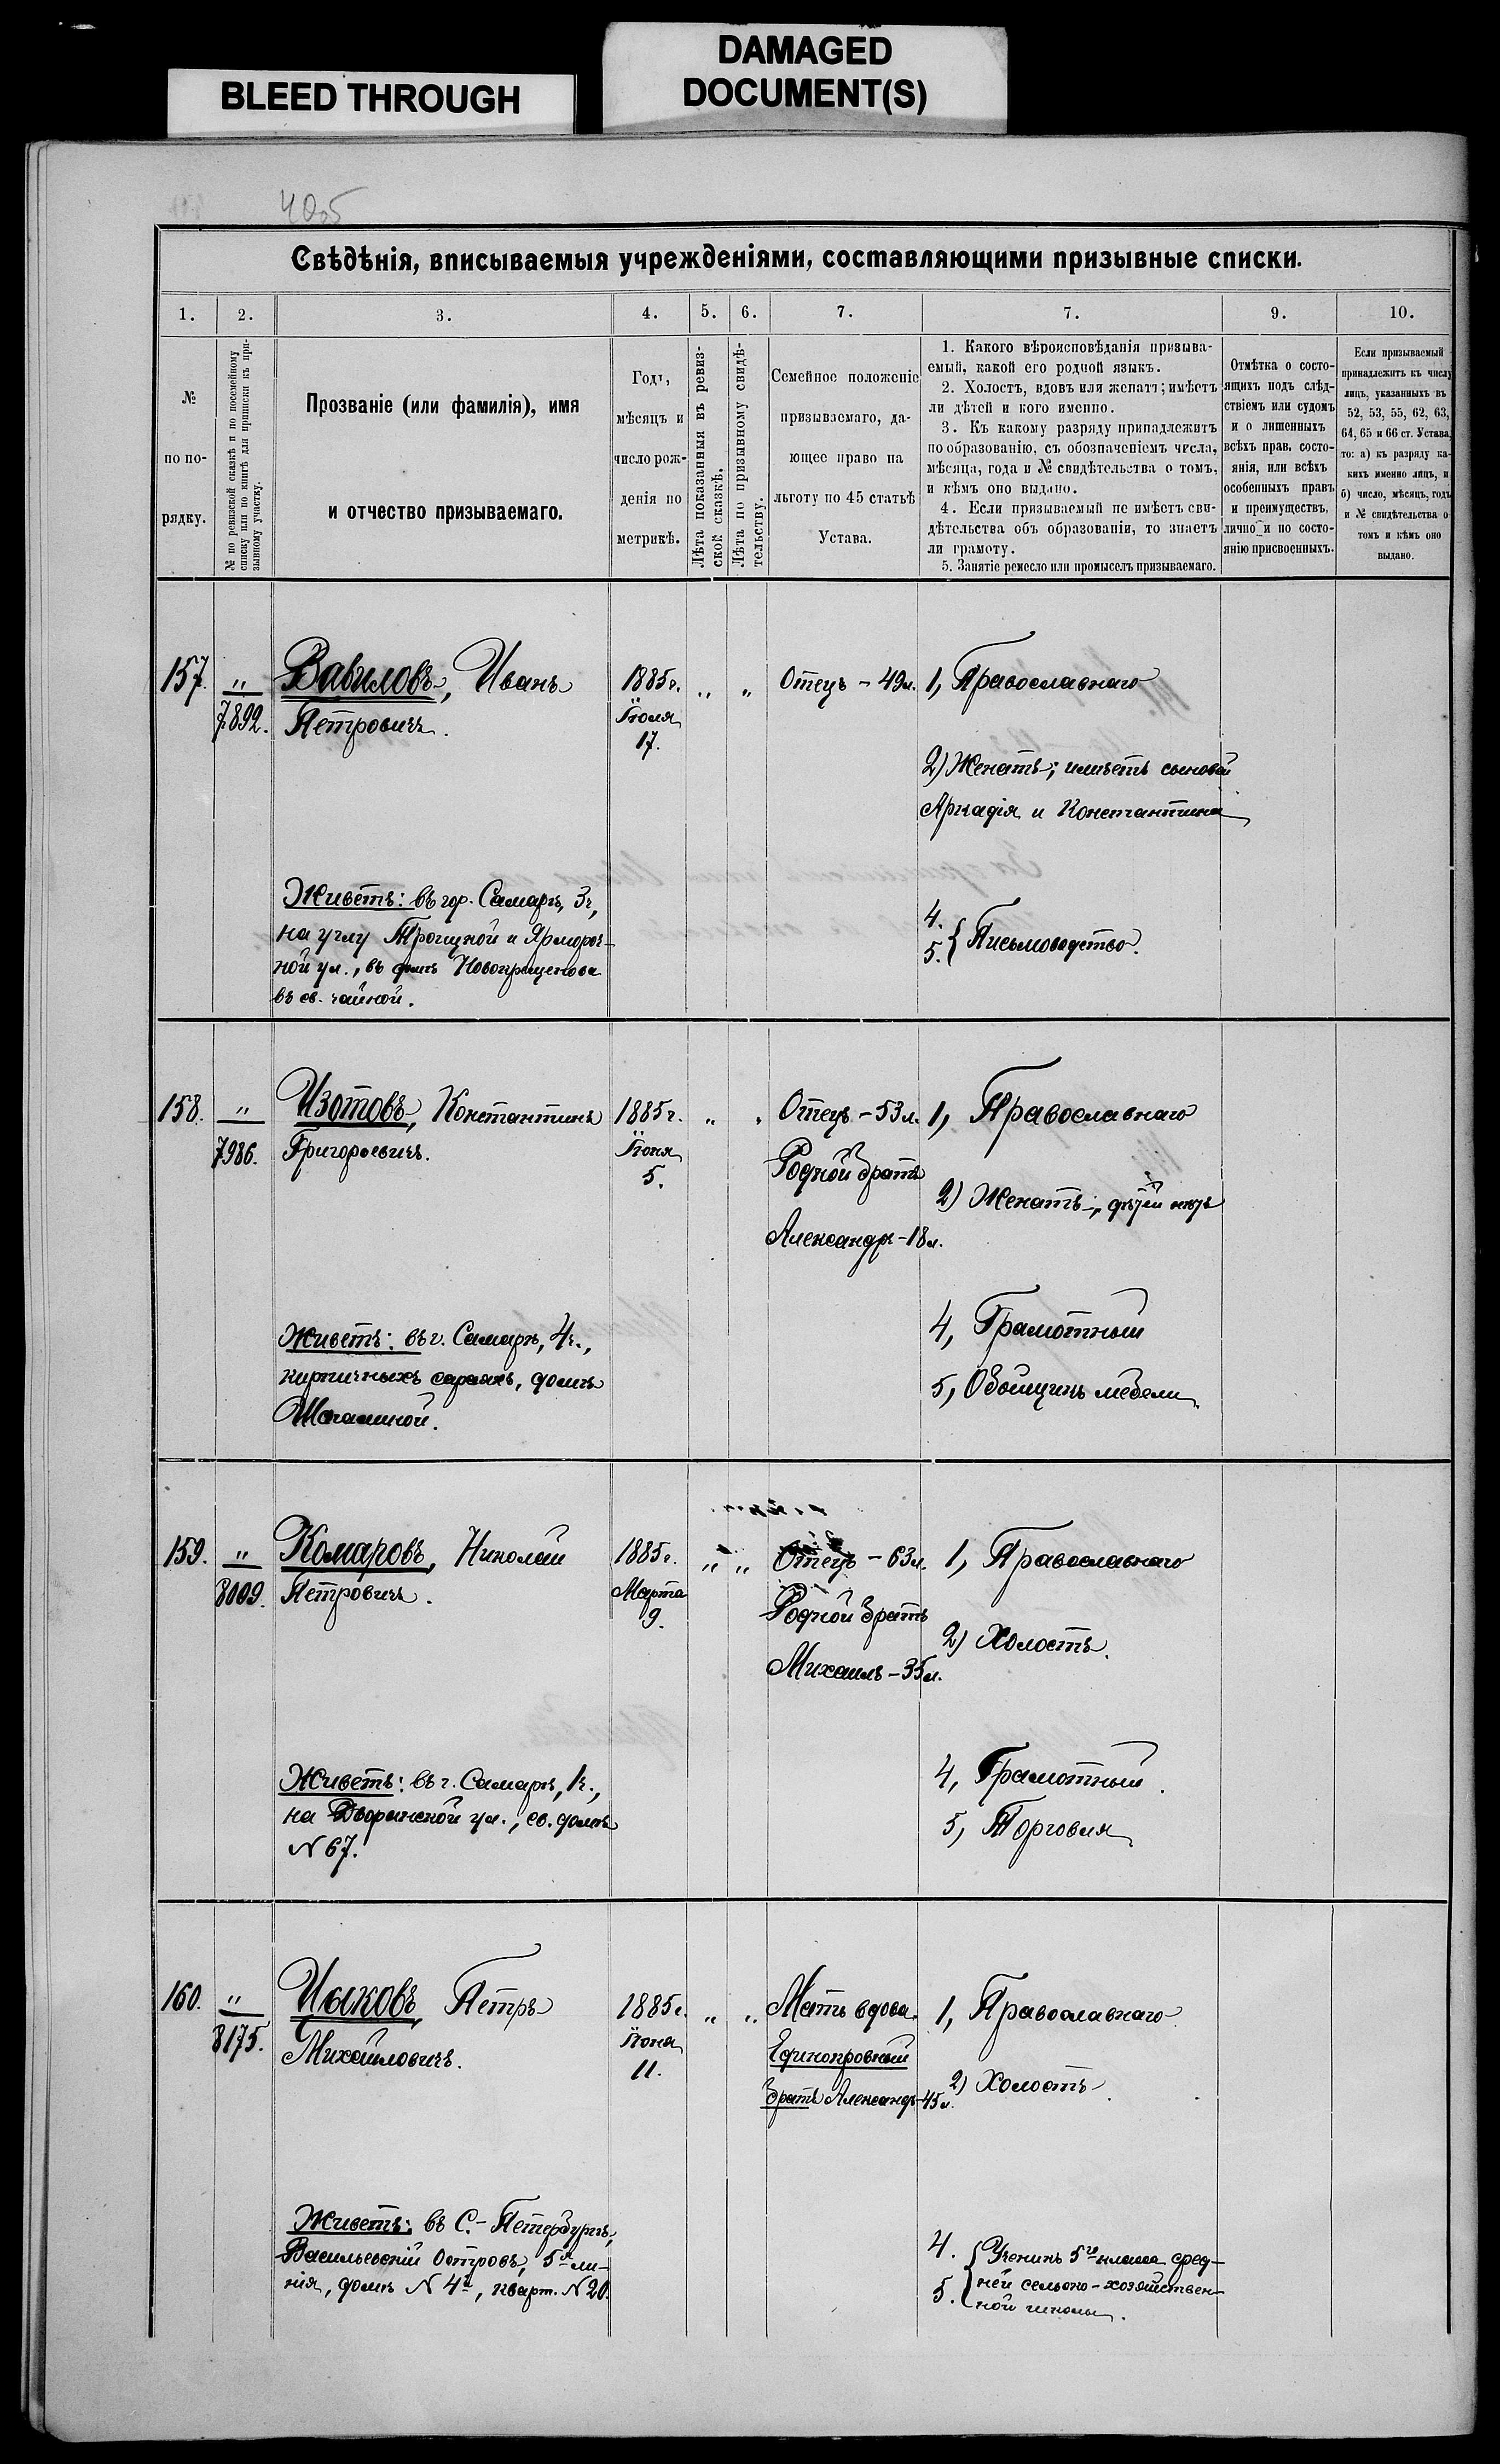 BLEED THROUGH
DAMAGED
DOCUMENT(S)
Свѣдѣнія, вписываемыя учрежденіями, составляющими призывные списки.
1. 2. 3. 4. 5. 6. 7. 7. 9. 10.
№
по по-
рядку.
№ по ревизской сказкѣ и по посемейному
списку или по книгѣ для приписки къ при-
зывному участку.
Прозваніе (или фамилія), имя
и отчество призываемаго.
Годъ,
мѣсяцъ и
число рож-
денія по
метрикѣ.
Лѣта показанныя въ ревиз-
ской сказкѣ.
Лѣта по призывному свидѣ-
тельству.
Семейное положеніе
призываемаго, да-
ющее право на
льготу по 45 статьѣ
Устава.
1. Какого вѣроисповѣданія призыва-
емый, какой его родной языкъ.
2. Холостъ, вдовъ или женатъ; имѣетъ
ли дѣтей и кого именно.
3. Къ какому разряду принадлежитъ
по образованію, съ обозначеніемъ числа,
мѣсяца, года и № свидѣтельства о томъ,
и кѣмъ оно выдано.
4. Если призываемый не имѣетъ сви-
дѣтельства объ образованіи, то знаетъ
ли грамоту.
5. Занятіе ремесло или промыселъ призываемаго.
Отмѣтка о состо-
ящихъ подъ слѣд-
ствіемъ или судомъ
и о лишенныхъ
всѣхъ прав. состо-
янія, или всѣхъ
особенныхъ правъ
и преимуществъ,
лично и по состо-
янію присвоенныхъ.
Если призываемый
принадлежитъ къ числу
лицъ, указанныхъ въ
52, 53, 55, 62, 63,
64, 65 и 66 ст. Устава,
то: а) къ разряду ка-
кихъ именно лицъ, и
б) число, мѣсяцъ, годъ
и № свидѣтельства о
томъ и кѣмъ оно
выдано.
157. "
7892.
Вавиловъ, Иванъ
Петровичъ.
1885г.
Іюля
17.
" "
Отецъ - 49л.
1, Православнаго
2) Женатъ; имѣетъ сыновей
Аркадія и Константина
Живетъ: въ гор. Самарѣ, 3ч,
на углу Троицкой и Ярмороч-
ной ул., въ домѣ Новокрещенова
въ св. чайной.
4.
5. { Письмоводство.
158. "
7986.
Изотовъ, Константинъ
Григорьевичъ.
1885г.
Іюня
5.
" "
Отецъ - 53л.
Родной братъ
Александръ - 18л.
1, Православнаго
2) Женатъ, дѣтей нѣтъ
Живетъ: въ г. Самарѣ, 4ч.,
кирпичныхъ сараяхъ, домъ
4, Грамотный
5, Обойщикъ мебели
159. "
8009.
Комаровъ, Николай
Петровичъ.
1885г.
Марта
9.
" "
Отецъ - 63л.
Родной братъ
Михаилъ - 35л.
1, Православнаго
2) Холостъ.
Живетъ: въ г. Самарѣ, 1ч.,
на Дворянской ул., св. домъ
N 67.
4, Грамотный.
5, Торговля
160. "
8175.
Петръ
Михайловичъ.
1885г.
Іюня
11.
" "
Мать вдова.
Единокровный
братъ Александръ - 45л.
1, Православнаго
2) Холостъ.
Живетъ: въ С.-Петербургѣ,
Васильевскій Островъ, 5я ли-
нія, домъ N 4й, кварт. N 20.
4.
5. { Ученикъ 5го класса сред-
ней сельско-хозяйствен-
ной школы.